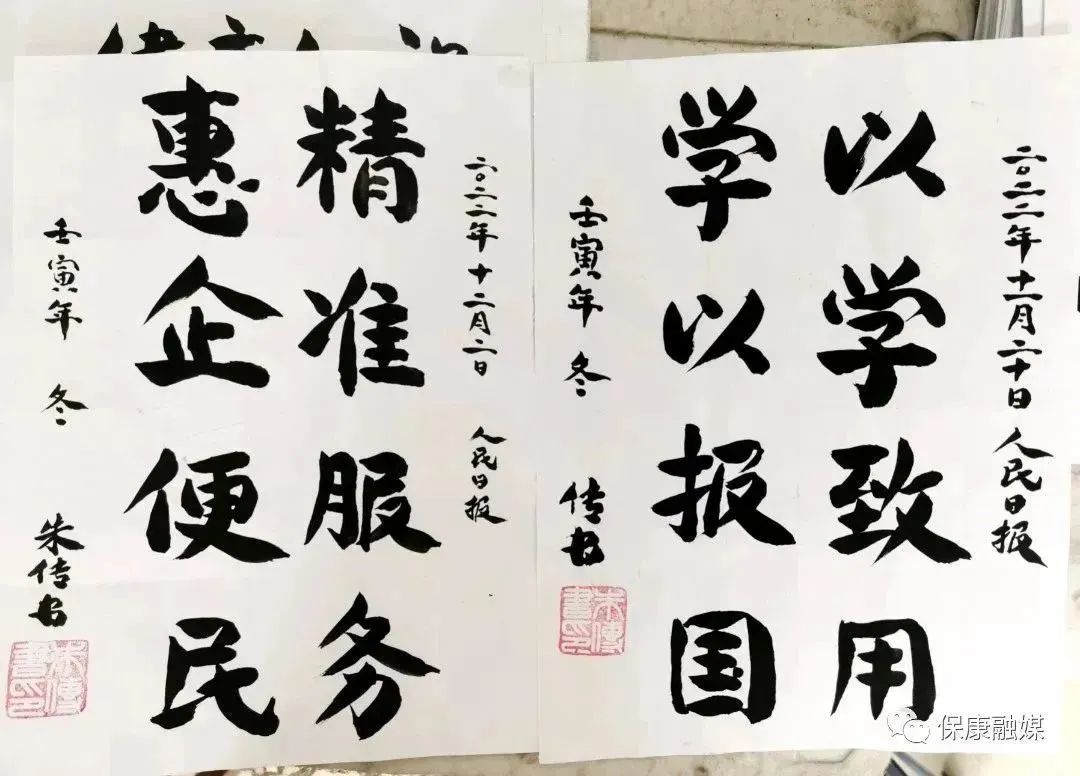 二〇二二年十二月二十日 人民日报
以学致用
学以报国
壬寅年 冬 传书
朱傳書印
二〇二二年十二月二日 人民日报
精准服务
惠企便民
壬寅年 冬 朱传书
朱傳書印
保康融媒